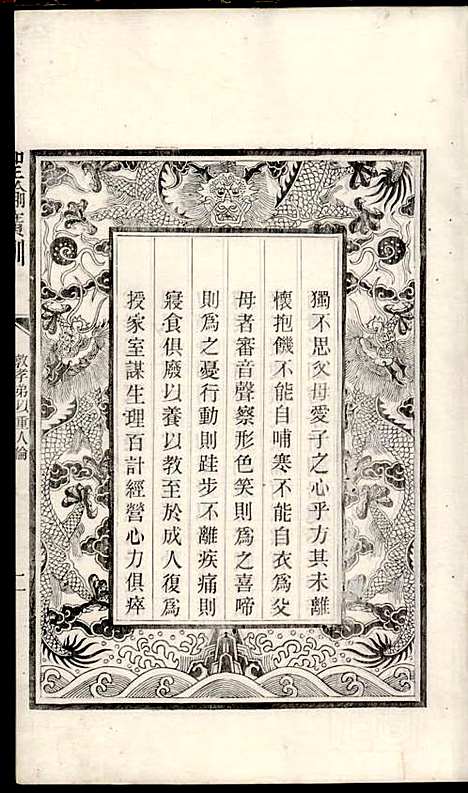 獨不思父母愛子之心乎方其未離
懷抱饑不能自哺寒不能自衣為父
母者審音聲察形色笑則為之喜啼
則為之憂行動則跬步不離疾痛則
寢食俱廢以養以教至於成人復為
授家室謀生理百計經營心力俱瘁
聖諭廣訓
敦孝弟以重人倫
二